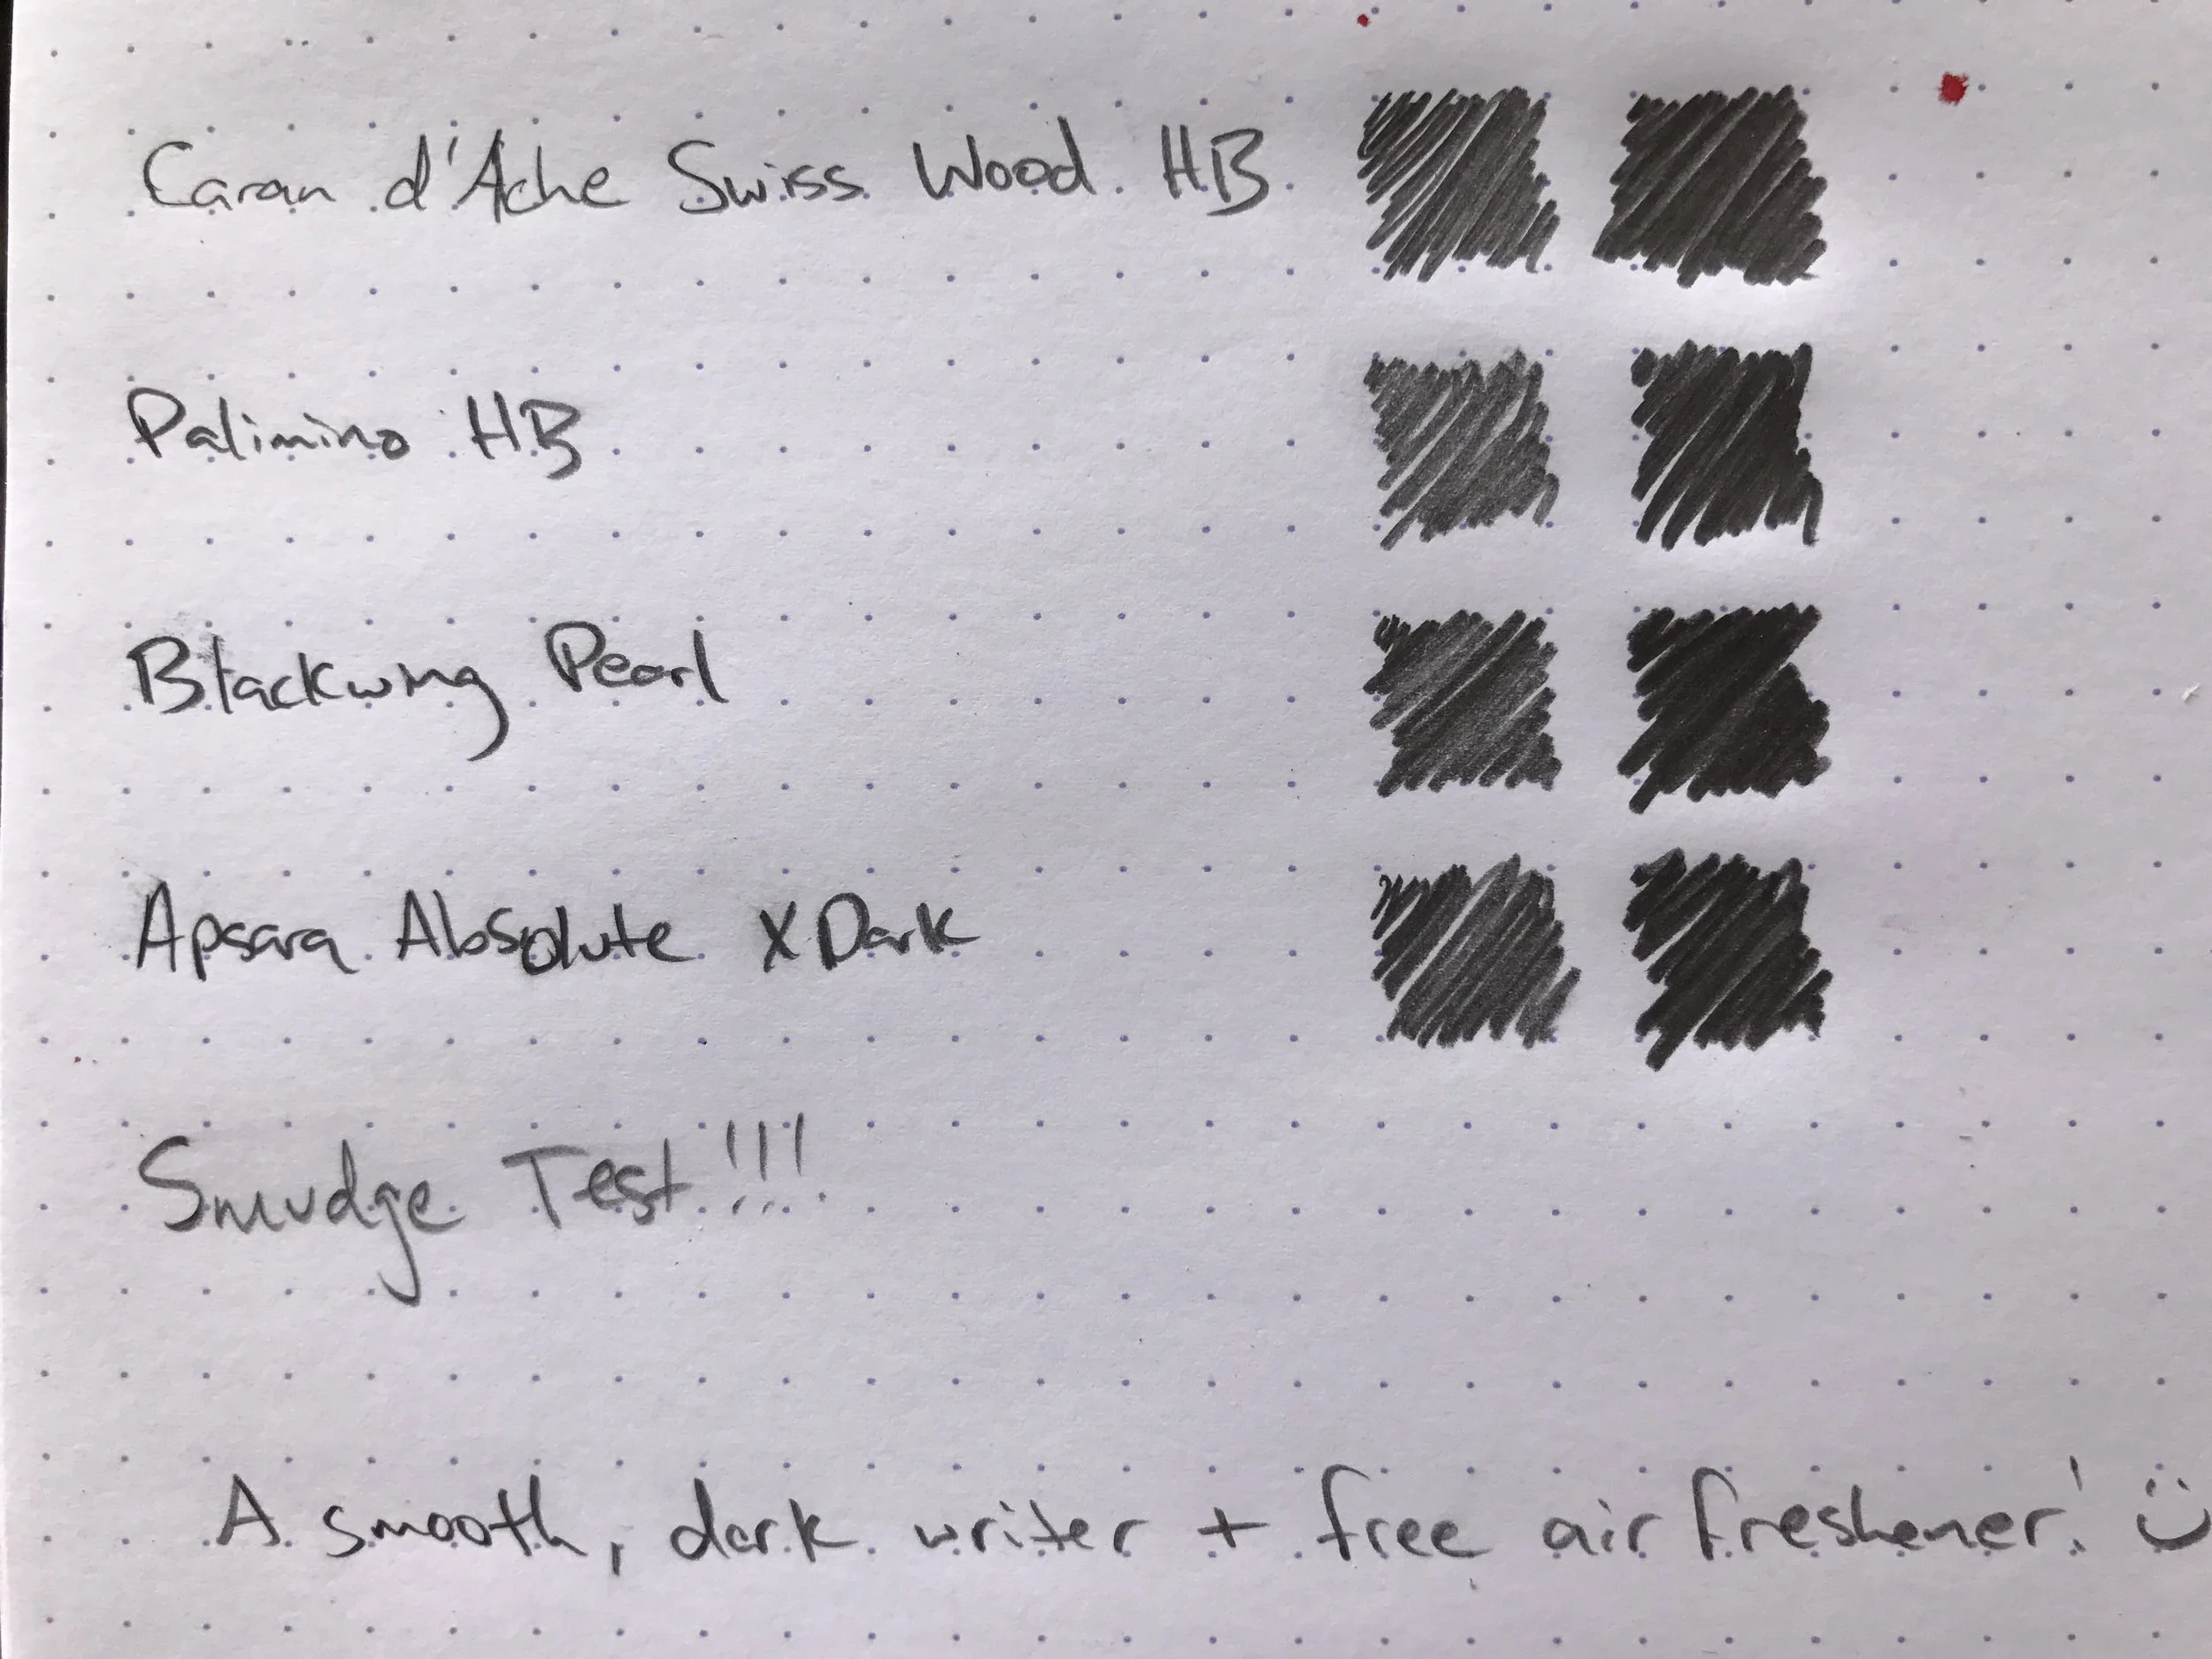 Caran d'Ache Swiss Wood HB
Palimino HB
Blackwing Pearl
Apsara Absolute XDark
Smudge Test!!!
A smooth, dark writer + free air freshener! :)